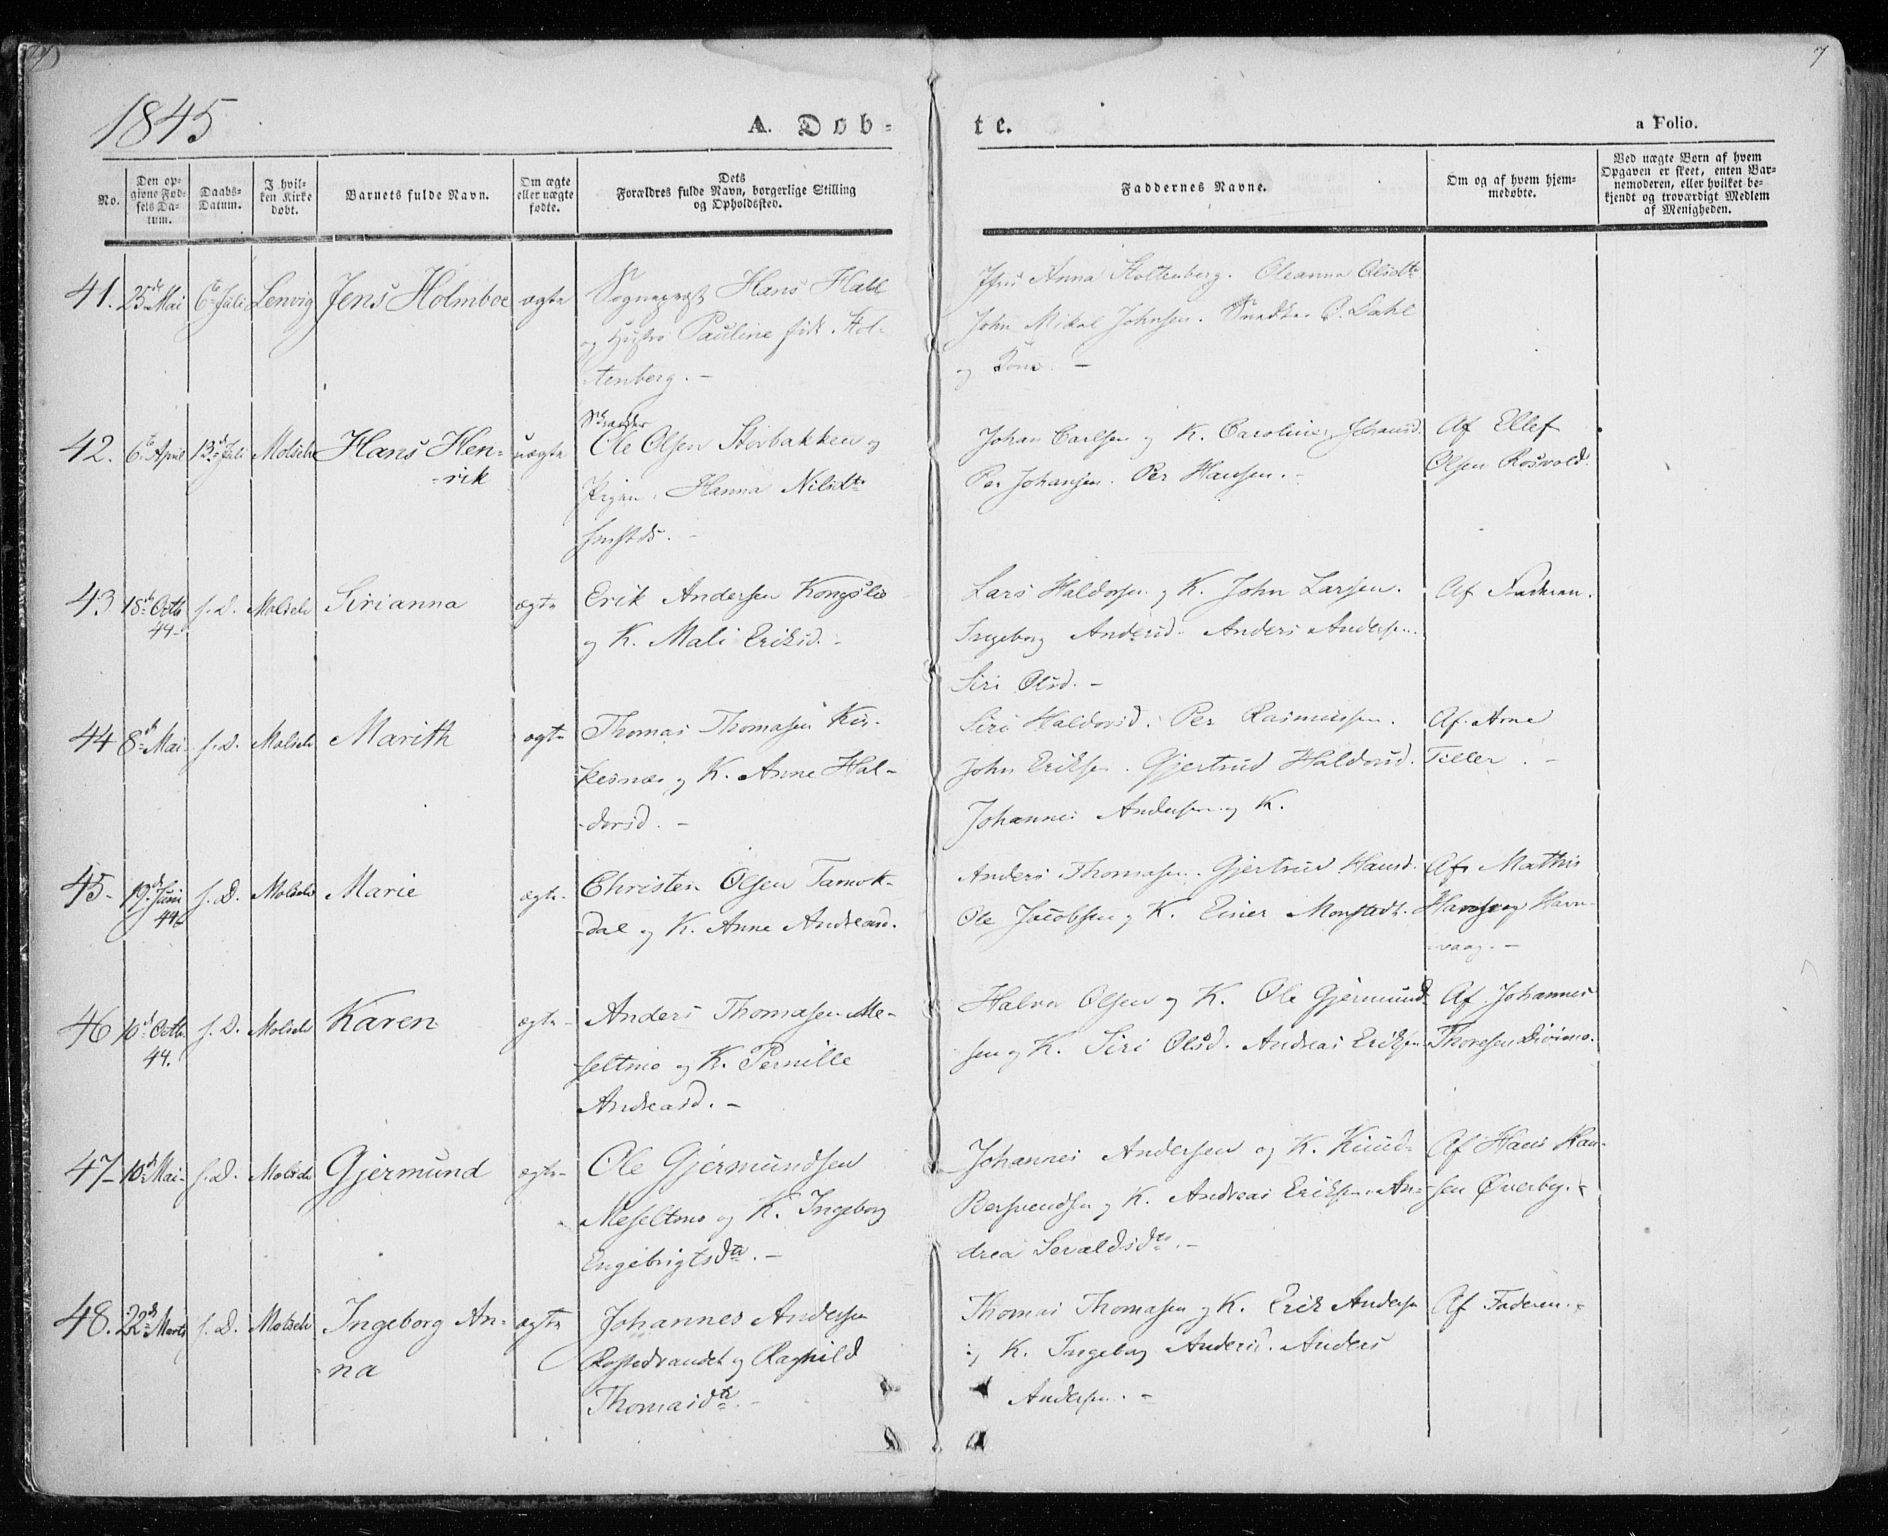 1845
A. Døb-
te.
a Folio.
7
No.
Den op-
givne Fød-
sels Da-
tum.
Daabs-
Datum.
I hvil-
ken Kirke
døbt.
Barnets fulde Navn.
Om ægte
eller uægte
fødte.
Dets
Forældres fulde Navn, borgerlige Stilling
og Opholdssted.
Faddernes Navne.
Om og af hvem hjem-
medøbte.
Ved uægte Børn af hvem
Opgaven er skeet, enten Bar-
nemoderen, eller hvilket be-
kjendt og troværdigt Medlem
af Menigheden.
41. 25de Mai 6te Juli Lenvig Jens Holmboe ægte
Sognepræst Hans Hall
og Hustro Pauline født Stol-
tenberg. -
Jfru Anna Stoltenberg. Oleanna Olsdtr
John Mikal Johnsen. P. Dahl
og Kone. -
42. 6te April 13de Juli Molselv Hans Hen-
-rik
uægte
Ole Olsen Storbakken og
Pigen Hanna Nilsdtr
Johan Carlsen og K. Caroline
Per Johansen. Per Hansen. -
Af Ellef
Olsen Rosvold.
43 18de Octbr
44-
s. D. Molselv Sirianna ægte
Erik Andersen Kongslie
og K. Mali Eriksd. -
Lars Haldorsen og K. John Larsen.
Ingeborg Andersd. Anders Andersen.
Siri Olsd. -
Af Faderen.
44 8de Mai s. D. Molselv Marith ægte
Thomas Thomasen Kir-
kesnæs og K. Anne Hal-
-dorsd. -
Siri Haldorsd. Per Rasmussen.
John Eriksen. Gjertrud Haldorsd.
Johannes Andersen og K.
Af Arne
Tiller. -
45- 19de Juni
44
s. D. Molselv Marie ægte-
Christen Olsen Tamok-
-dal og K. Anne Andreasd.
Anders Thomasen. Gjertrud Hansd.
Ole Jacobsen og K. Einer Monstadt.
Af Mathis
Havn-
-vaag. -
46 10de Octbr
44.
s. D. Molselv Karen ægte-
Anders Thomasen Me-
seltmo og K. Pernille
Andreasd. -
Halvor Olsen og K. Ole Gjermund-
sen og K. Siri Olsd. Andreas Eriksen
Af Johannes
Thoresen
47- 10de Mai- s. D. Molselv Gjermund ægte-
Ole Gjermundsen
Meseltmo og K. Ingeborg
Engebrigtsdtr. -
Johannes Andersen og K. Knud
og K. Andreas Eriksen. An-
drea Sevaldsdtr. -
Af Hans Han-
sen Øverby. -
48. 22de Marts s. D. Molselv Ingeborg An-
-na
ægte
Johannes Andersen
og Ragnild
Thomasdtr. -
Thomas Thomasen og K. Erik Andersen
og K. Ingeborg Andersd. Anders
Andersen. -
Af Faderen. -